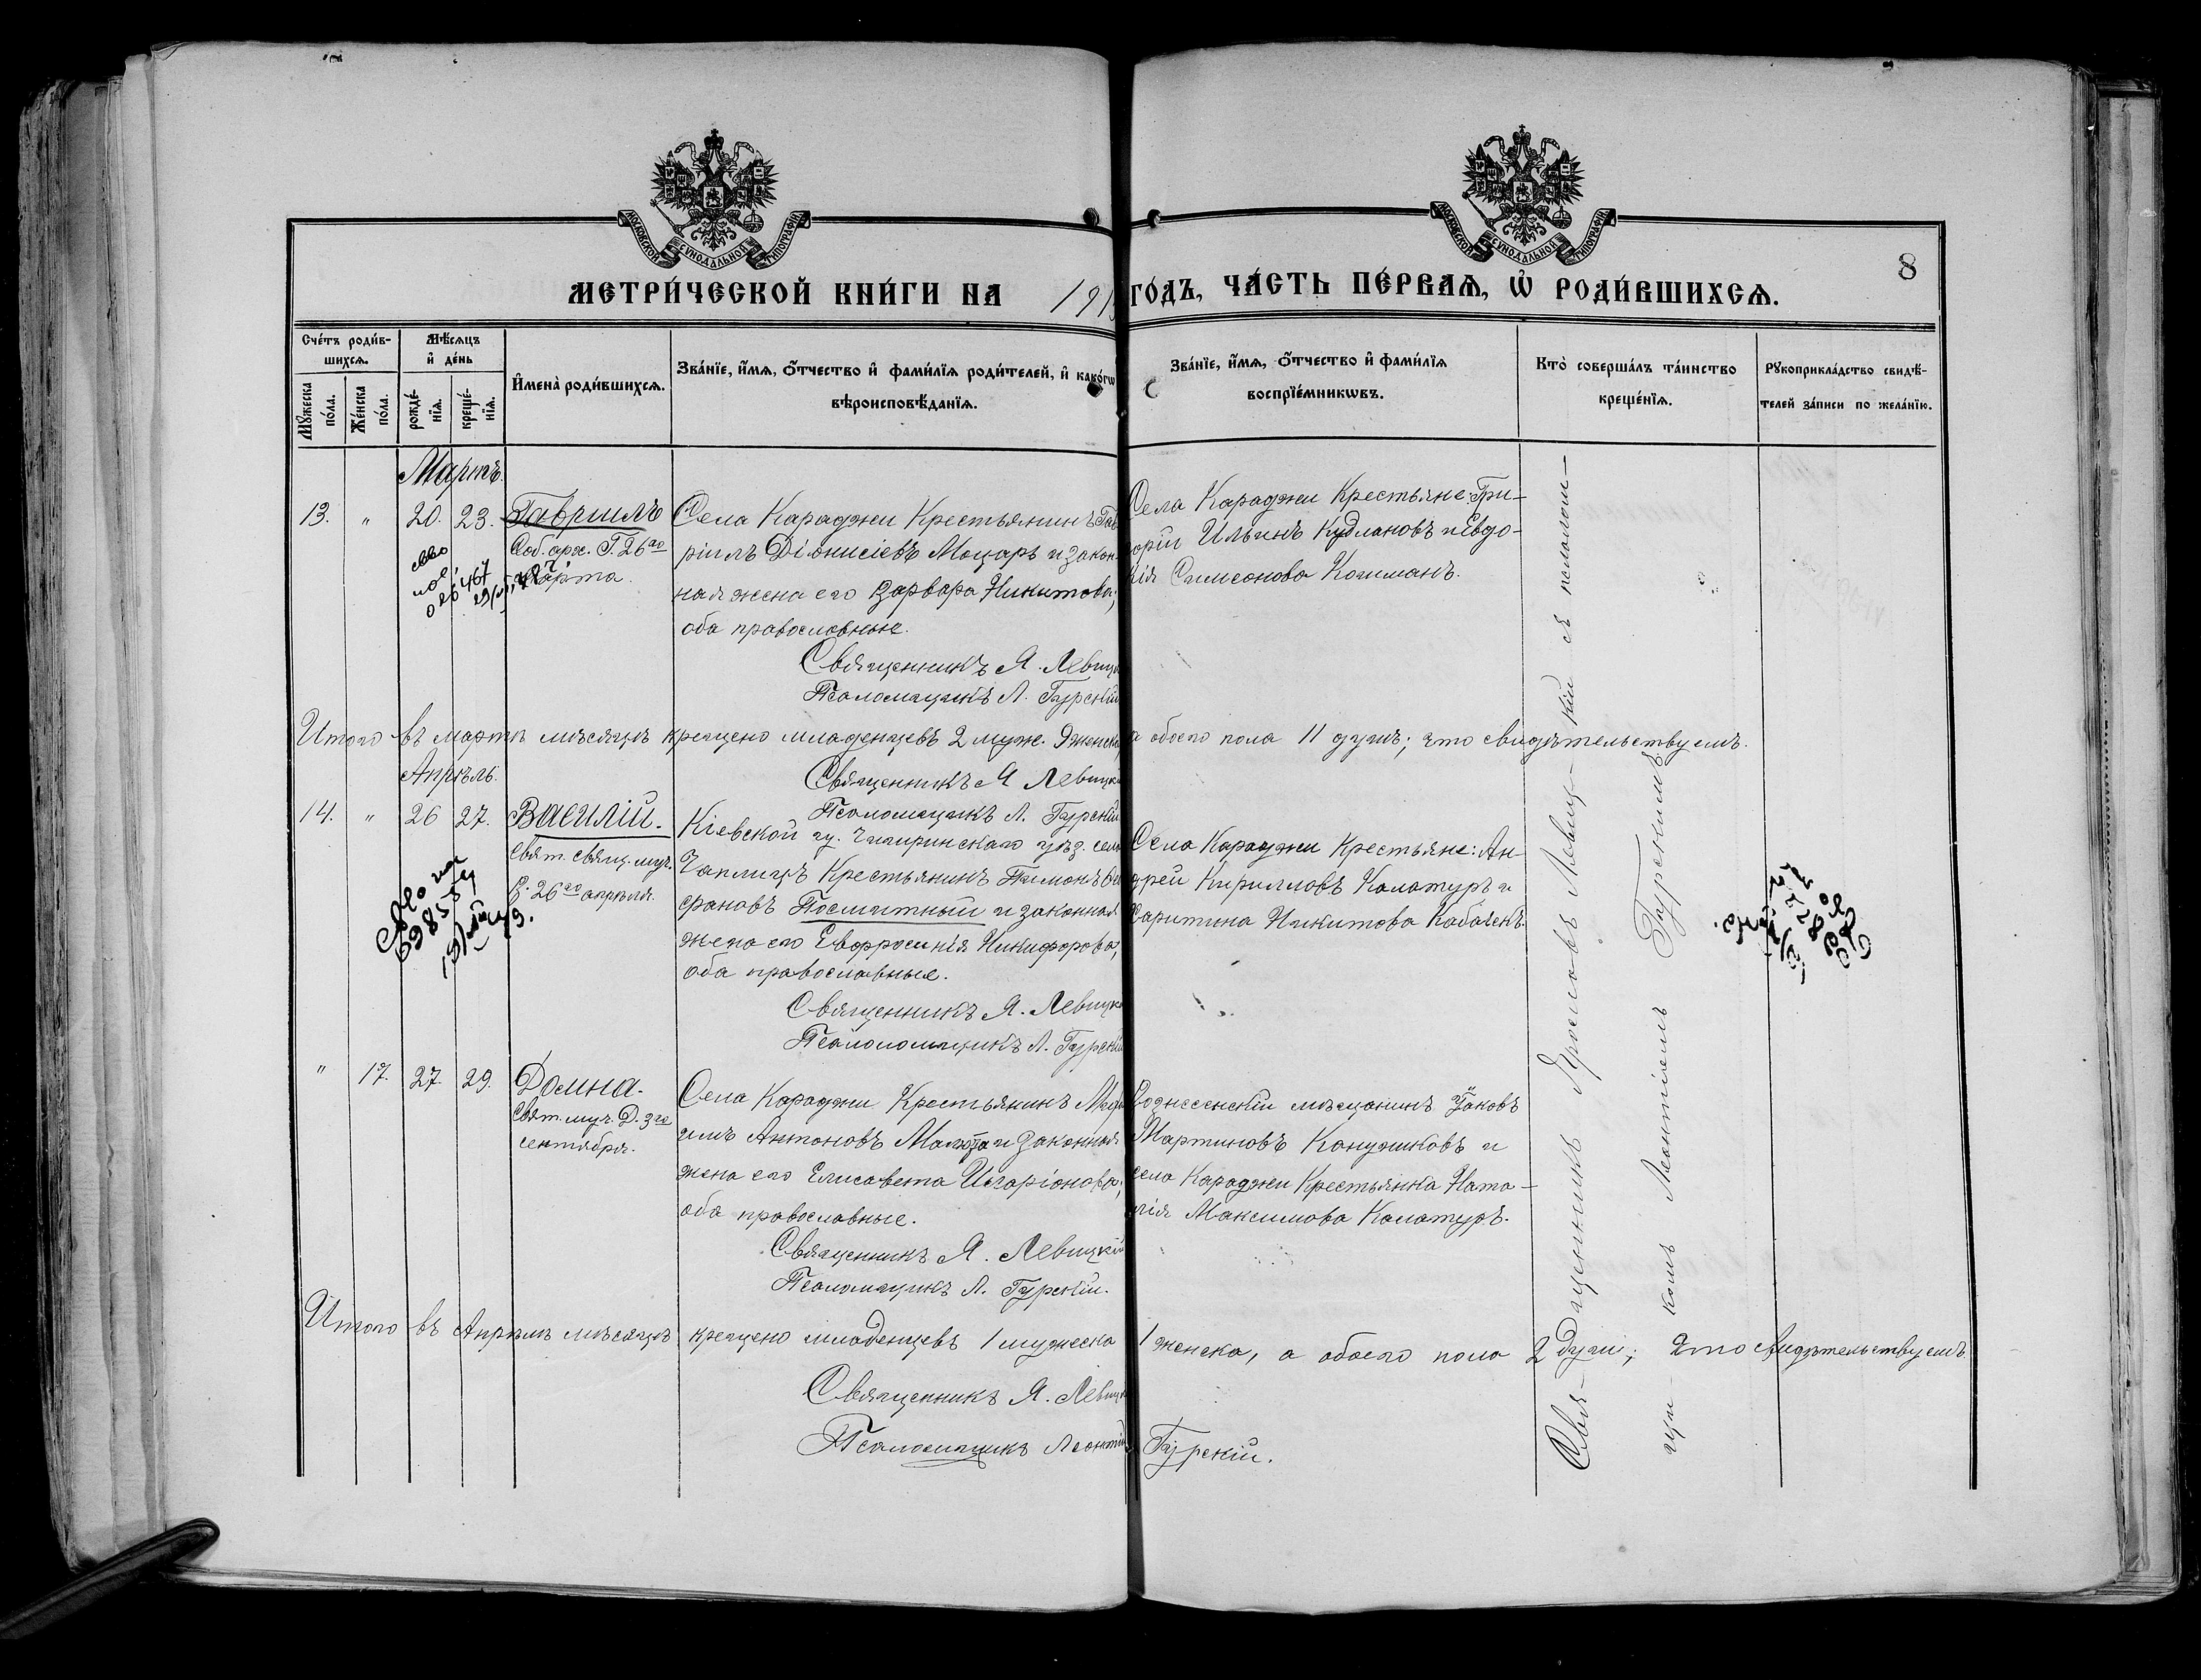 МОСКОВСКОЙ СУНОДАЛЬНОЙ ТИПОГРАФІИ
МОСКОВСКОЙ СУНОДАЛЬНОЙ ТИПОГРАФІИ
8
МЕТРИ́ЧЕСКОЙ КНИ́ГИ НА 191
ГО́ДЪ, ЧА́СТЬ ПЕ́РВАѦ, Ѡ҆ РОДИ́ВШИХСѦ.
Сче́тъ роди́в-
шихсѧ.
Мꙋжеска по́ла.
Же́нска по́ла.
Мѣ́сѧцъ
и҆ де́нь
рожде́-
нїѧ.
креще́-
нїѧ.
И҆мена̀ роди́вшихсѧ.
Зва́нїе, и҆́мѧ, ѻ҆́тчество и҆ фами́лїѧ роди́телей, и҆ како́гѡ
вѣроисповѣ́данїѧ.
Зва́нїе, и҆́мѧ, ѻ҆́тчество и҆ фами́лїѧ
воспрїе́мникѡвъ.
Кто̀ соверша́лъ та́инство
креще́нїѧ.
Рꙋкоприкла́дство свидѣ́-
телей за́писи по жела́нїю.
Мартъ.
13. " 20. 23. Гавріилъ
Соб. арх. Г. 26го
Марта.
Села Караджи Крестьянинъ Гав
ріилъ Діонисіевъ Моцарь и закон-
ная жена его Варвара Никитова,
оба православные.
Священникъ Я. Левицк
Псаломщикъ Л. Гурскій
Села Караджи Крестьяне: Гри-
горій Ильинъ Кудлановъ и Евдо-
кія Симеонова Когиманъ.
Итого въ мартѣ мѣсяцѣ крещено младенцевъ 2 муж. 9 женск
а обоего пола 11 душъ; что свидѣтельствуемъ.
Апрѣль.
Священникъ Я Левицк
Псаломщикъ Л. Гурскій
14. " 26 27. Василій.
Свят. свящ. муч.
В. 26го апрѣля.
Кіевской гу. Чигиринскаго уѣзд. села
Чаплищъ Крестьянинъ Пимонъ
фановъ Посмитный и законная
жена его Евфросинія Никифорова,
оба православные.
Священникъ Я. Левицк
Псаломщикъ Л. Гурскій
Села Караджи Крестьяне: Ан-
дрей Кирилловъ Калатуръ и
Харитина Никитова Кабаченъ.
" 17. 27. 29. Домна.
Свят. муч. Д. 3го
сентября.
Села Караджи Крестьянинъ
Антоновъ Малюта и законная
жена его Елисавета Иларіонова,
оба православные.
Священникъ Я. Левицкій
Псаломщикъ Л. Гурскій.
Вознесенскій мѣщанинъ Яковъ
Мартиновъ Канужиковъ и
села Караджи Крестьянка Ната-
лія Максимова Калатуръ.
Итого въ Апрѣлѣ мѣсяцѣ крещено младенцевъ 1 мужеска
1 женска, а обоего пола 2 души; что свидѣтельствуемъ
Священникъ Я. Левицк
Псаломщикъ Леонтій Гурскій.
Свя-щенникъ Ярославъ Левиц-кій съ псаломщ-
щи-комъ Леонтіемъ Гурскимъ